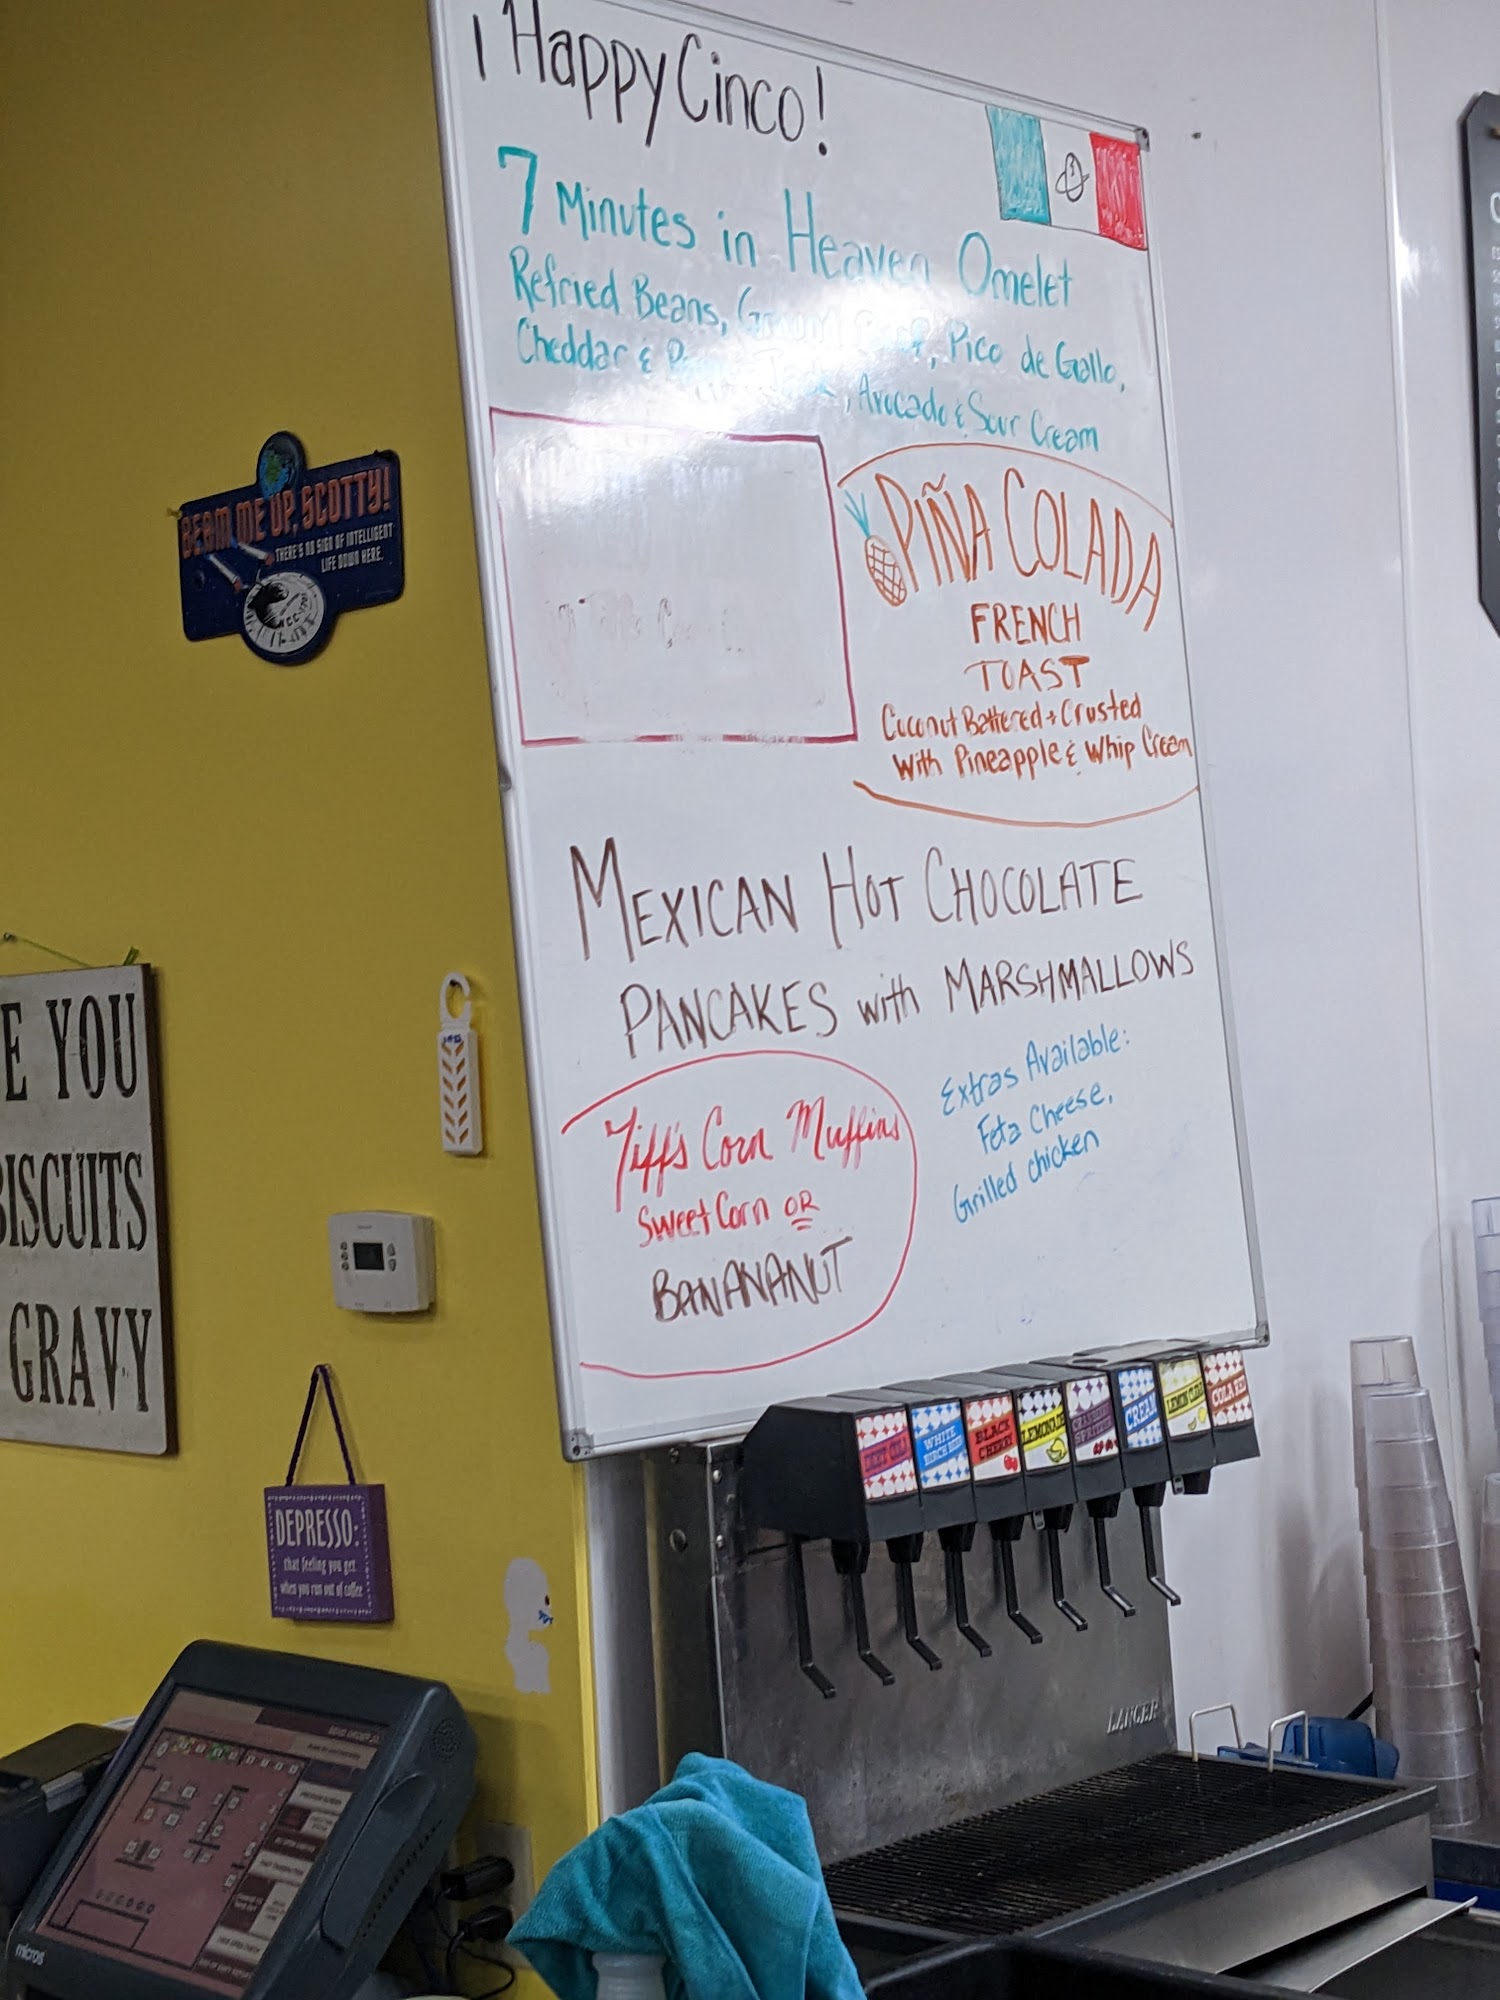 ¡Happy Cinco!
7 Minutes in Heaven Omelet
Refried Beans, Ground Beef, Pico de Gallo,
Cheddar & Jack, Avocado & Sour Cream
PIÑA COLADA
FRENCH
TOAST
Coconut Battered + Crusted
With Pineapple & Whip Cream
MEXICAN HOT CHOCOLATE
PANCAKES with MARSHMALLOWS
Extras Available:
Feta Cheese,
Grilled chicken
Tiff's Corn Muffins
Sweet Corn OR
BANANANUT
BEAM ME UP, SCOTTY!
THERE'S NO SIGN OF INTELLIGENT
LIFE DOWN HERE.
E YOU
BISCUITS
GRAVY
DEPRESSO:
that feeling you get
when you run out of coffee
DIET COLA
WHITE
BIRCH BEER
BLACK
CHERRY
LEMONADE
CRANBERRY
SPRITZER
CREAM
LEMON LIME
COLA RED
LANCER
micros